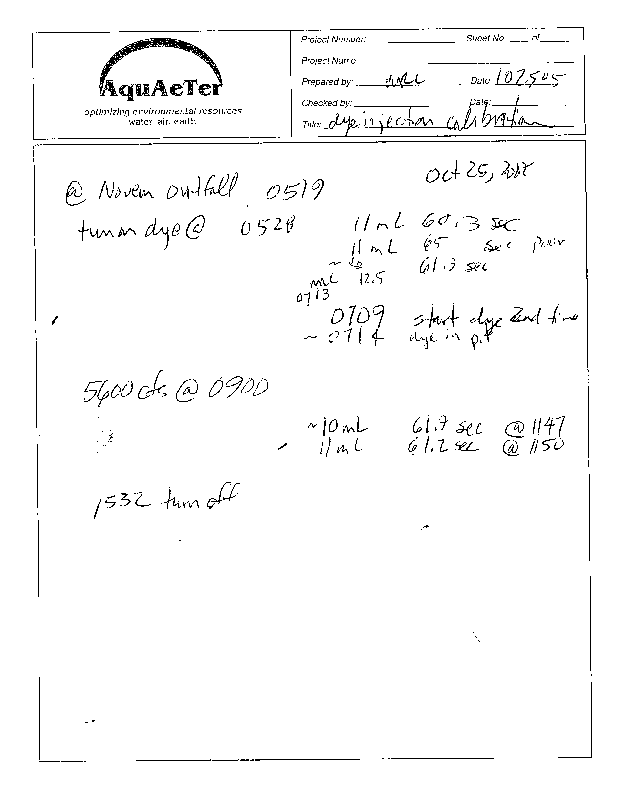 Project Number: Sheet No. of
Project Name
AquAeTer
Prepared by: Date 102505
optimizing environmental resources
water, air, earth
Checked by: Date:
Title: dye injection calibration
Oct 25, 2005
@ Noven outfall 0519
turn on dye @ 0528 11 mL 60.3 sec
11 mL 65 sec
~ 61.3 sec
mL 12.5
0713
0709 start dye 2nd time
~ 0714 dye in p.t
5600 cfs @ 0900
~10 mL 61.7 sec @ 1147
11 mL 61.2 sec @ 1150
1532 turn off